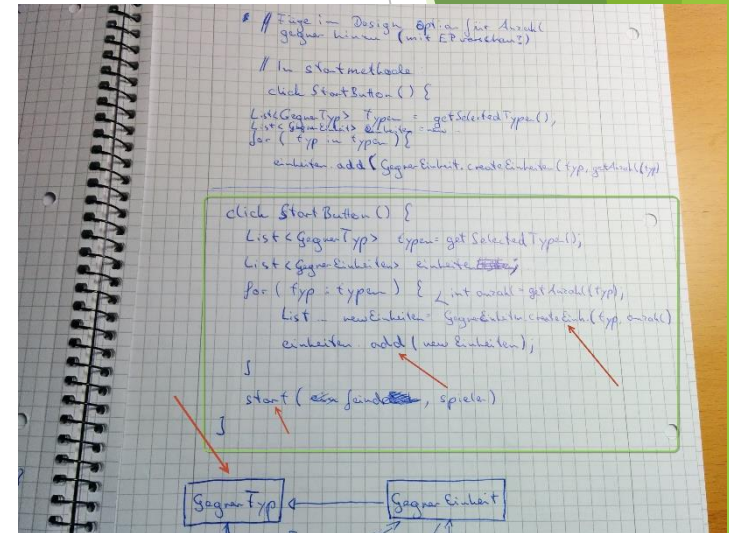 // Füge im Design option für Anzahl
gegner hinzu (mit EP vorschau?)
// In startmethode
click StartButton () {
List<GegnerTyp> Typen = getSelectedTypen();
List<GegnerEinheit>
for ( typ in typen ) {
einheiten.add (GegnerEinheit.createEinheiten (typ, getAnzahl(typ)
click Start Button () {
List <GegnerTyp> typen = get Selected Typen();
List <GegnerEinheiten> einheiten
for ( typ : typen ) { int anzahl = get Anzahl (typ);
List _ newEinheiten = GegnerEinheiten.createEinh. (typ, anzahl)
einheiten. add ( new Einheiten );
}
start ( feinde , spieler)
}
GegnerTyp
GegnerEinheit